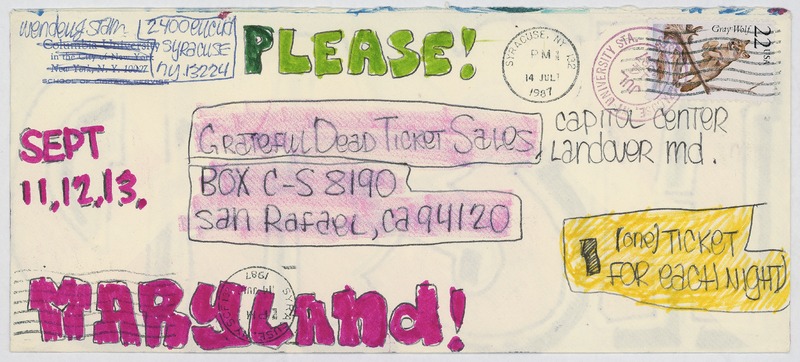 PLEASE!
Columbia University
in the City of New York
New York, N. Y. 10027
SYRACUSE
NY. 13224
SYRACUSE, NY 132
PM
14 JUL
1987
UNIVERSITY STA.
Gray Wolf
22 USA
SEPT
11, 12, 13.
GRATEFUL DEAD TICKET SALES
BOX C-S 8190
San Rafael, ca 94120
CAPITOL CENTER
LANDOVER md.
(one) TICKET
FOR EACH NIGHT)
MARYLAnd!
1987